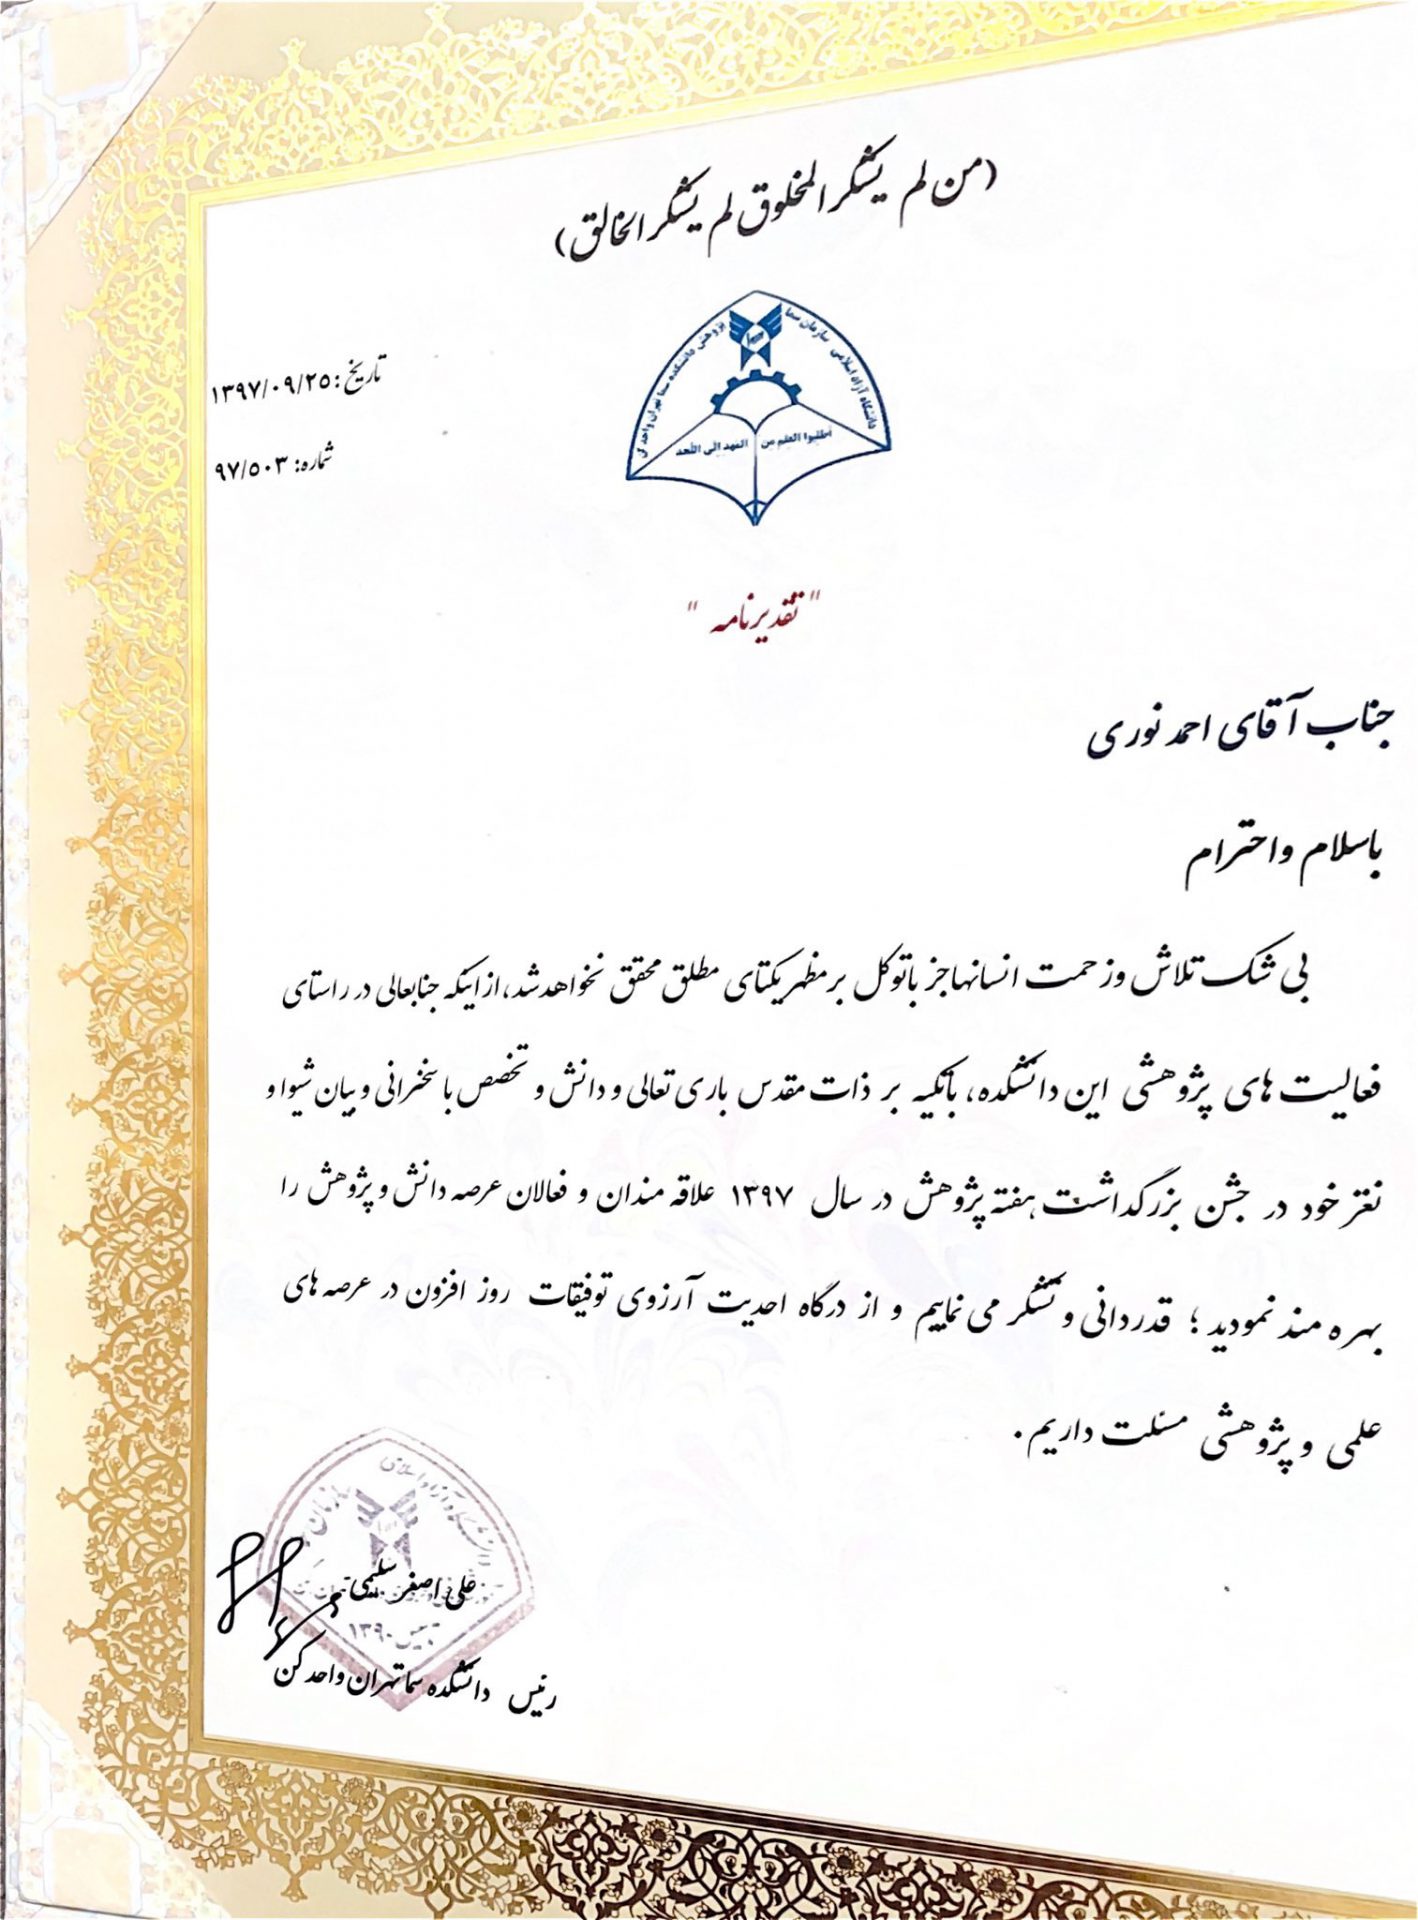 (من لم یشکر المخلوق لم یشکر الخالق)
دانشگاه آزاد اسلامی سازمان سما
پژوهش دانشکده سما تهران واحد کن
اطلبوا العلم من المهد الی اللحد
تاریخ: ۱۳۹۷/۰۹/۲۵
شماره: ۹۷/۵۰۳
"تقدیرنامه"
جناب آقای احمد نوری
باسلام واحترام
بی شک تلاش وزحمت انسانها جز باتوکل بر مظهر یکتای مطلق محقق نخواهد شد، از اینکه جنابعالی در راستای
فعالیت های پژوهشی این دانشکده، باتکیه بر ذات مقدس باری تعالی و دانش و تخصص با سخنرانی و بیان شیوا و
نغز خود در جشن بزرگداشت هفته پژوهش در سال ۱۳۹۷ علاقه مندان و فعالان عرصه دانش و پژوهش را
بهره مند نمودید؛ قدردانی و تشکر می نماییم و از درگاه احدیت آرزوی توفیقات روز افزون در عرصه های
علمی و پژوهشی مسئلت داریم.
دانشگاه آزاد اسلامی
سازمان
تاسیس ۱۳۹۰
علی اصغر سلیمی
رئیس دانشکده سما تهران واحد کن